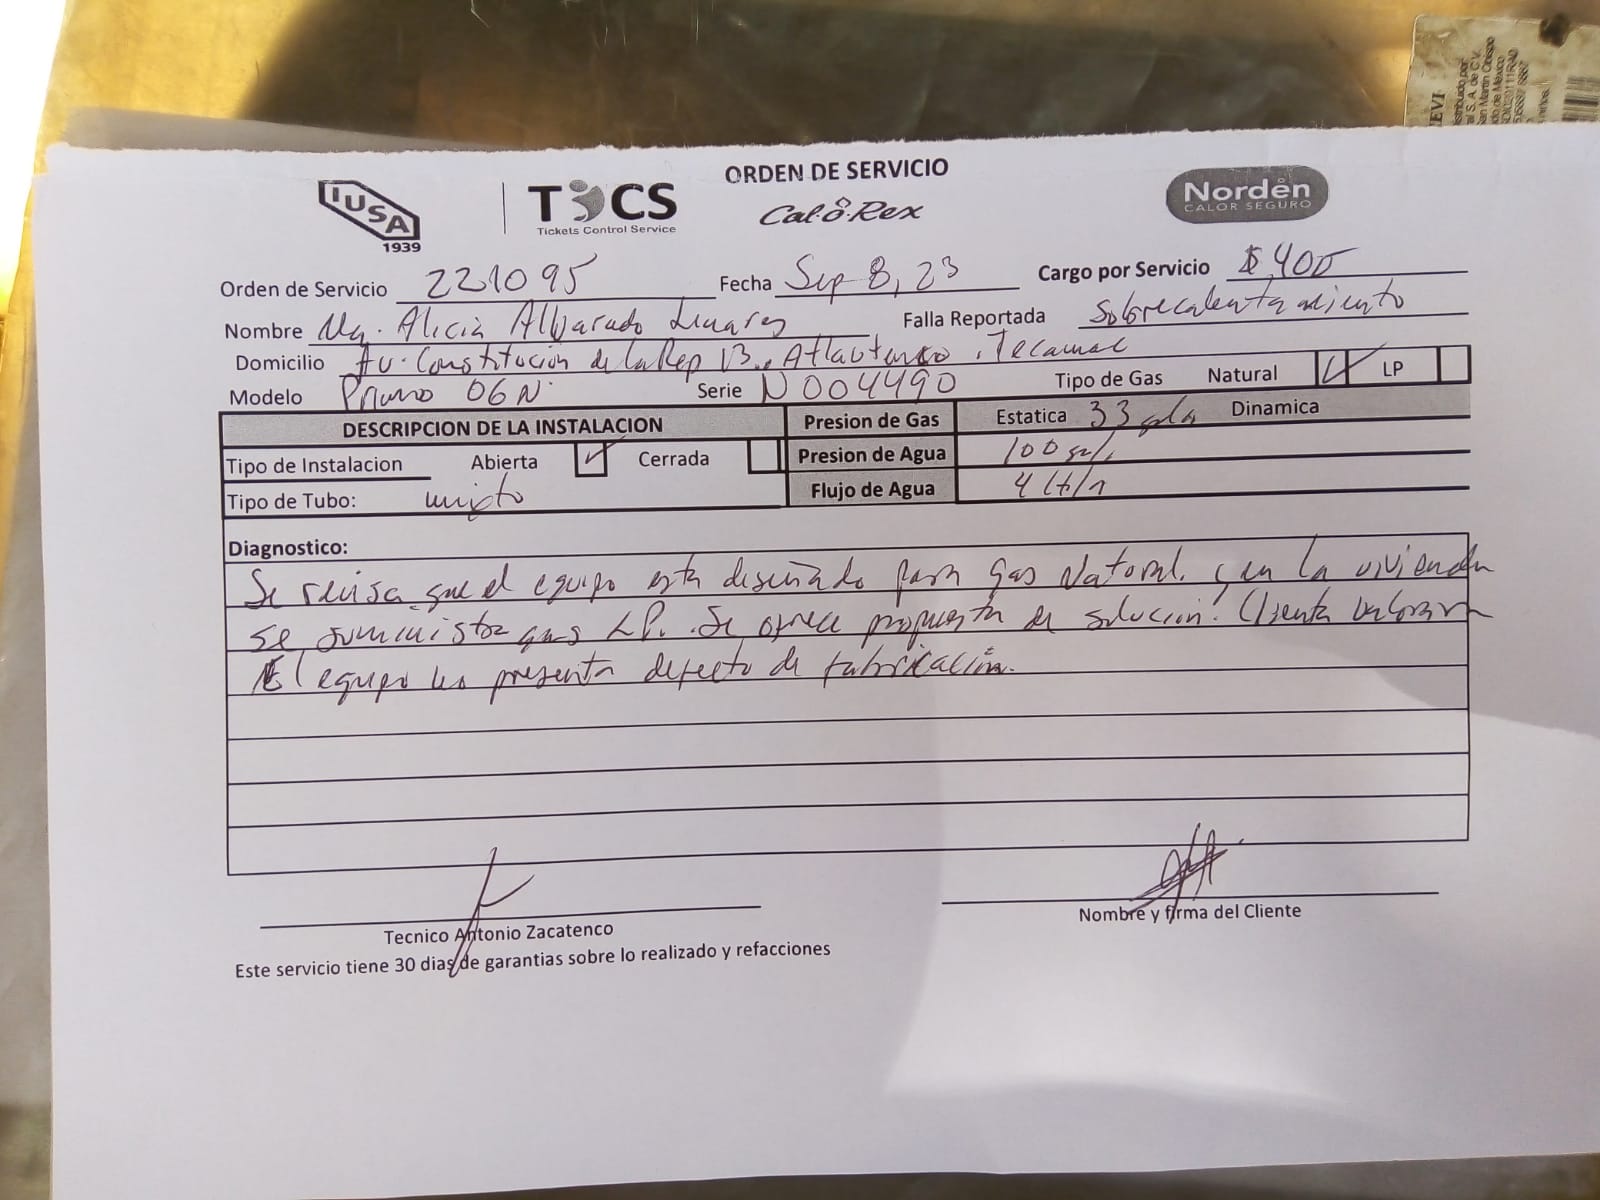 EVI
stribuido por:
al S. A. de C.V.
an Martin Obispo
do de México
IUSA
1939
TCS
Tickets Control Service
ORDEN DE SERVICIO
Cal-O-Rex
Norden
CALOR SEGURO
Orden de Servicio 221095 Fecha Sep 8, 23 Cargo por Servicio $400
Nombre Ma. Alicia Alvarado Linares Falla Reportada Sobrecalentamiento
Domicilio Av. Constitución de la Rep 13., Atlautenco, Tecamac
Modelo Primo 06N Serie N004490 Tipo de Gas Natural ✓ LP
DESCRIPCION DE LA INSTALACION Presion de Gas Estatica 33 Dinamica
Tipo de Instalacion Abierta ✓ Cerrada Presion de Agua 100
Tipo de Tubo: mixto Flujo de Agua 4 lt/
Diagnostico:
Se revisa que el equipo esta diseñado para gas Natural, y en la vivienda
se suministra gas LP. Se ofrece propuesta de solución. Clienta valorara
El equipo no presenta defecto de fabricación.
Tecnico Antonio Zacatenco
Nombre y firma del Cliente
Este servicio tiene 30 dias de garantias sobre lo realizado y refacciones